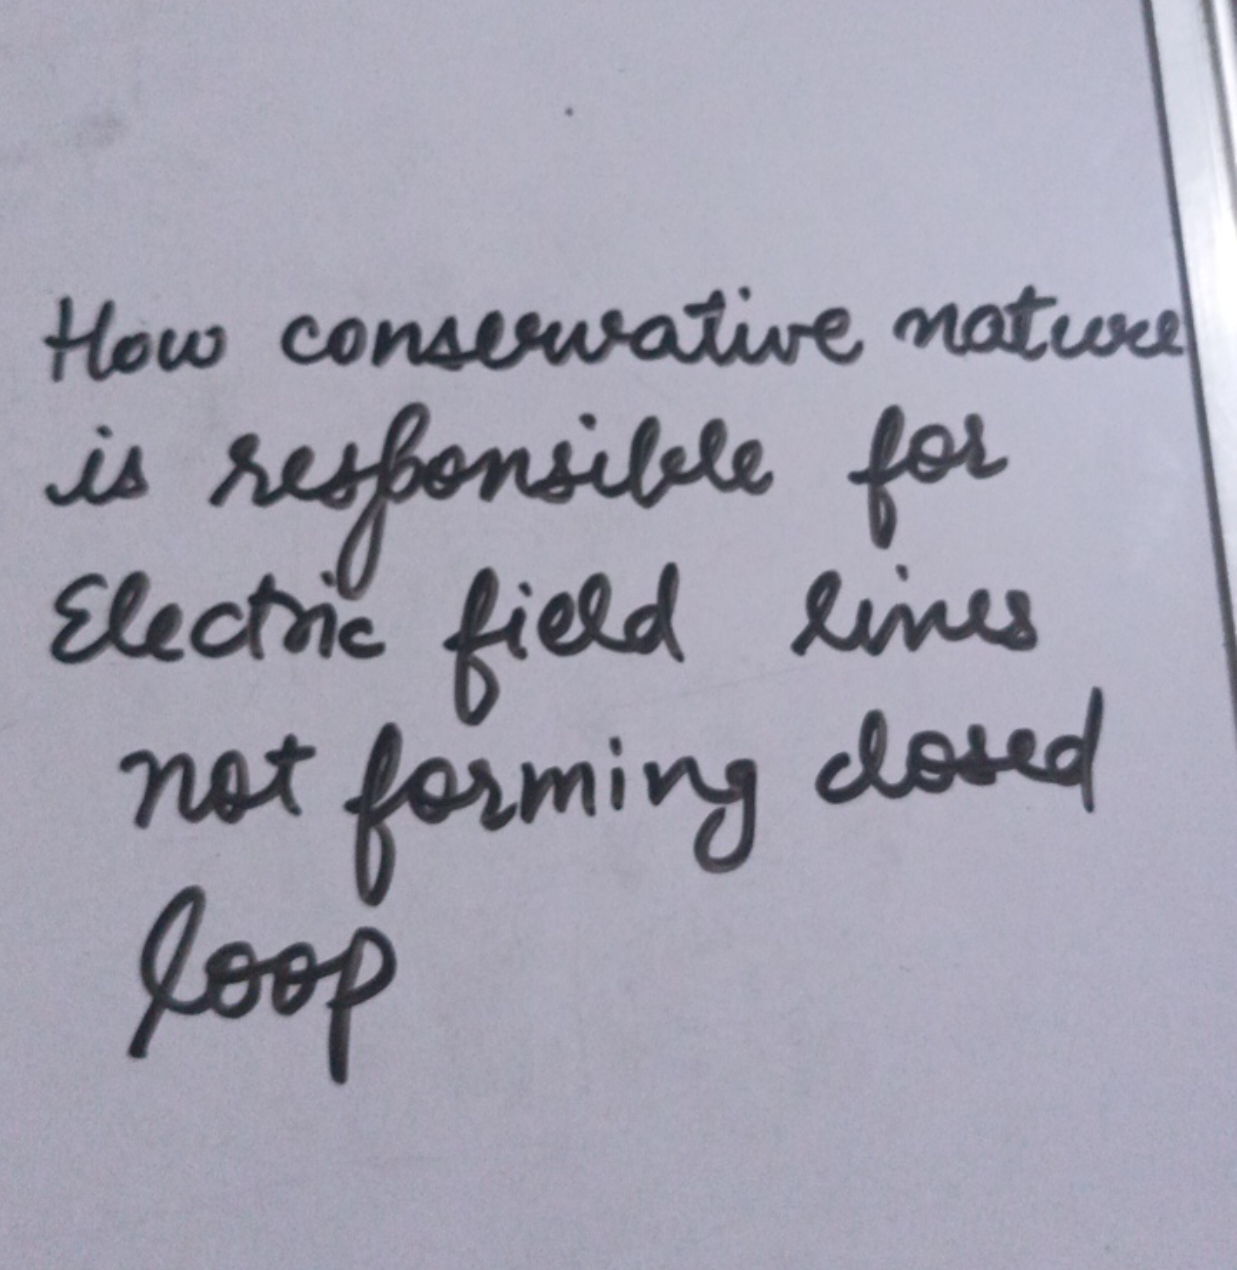 How conservative nature
is responsible for
Electric field lines
not forming closed
loop